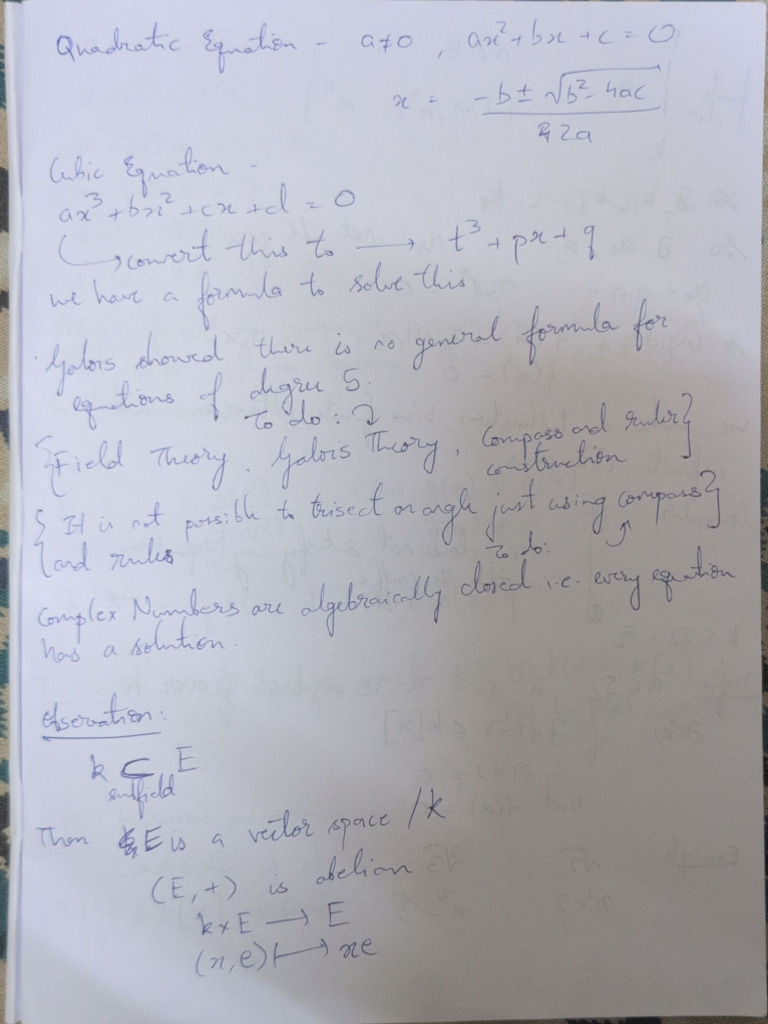 Quadratic Equation - a≠0, ax²+bx+c=0
x = (-b ± √(b²-4ac)) / 2a
Cubic Equation -
ax³+bx²+cx+d=0
↳ convert this to → t³+px+q
we have a formula to solve this
Galois showed there is no general formula for
equations of degree 5.
To do:
{Field Theory, Galois Theory, Compass and ruler
construction}
{It is not possible to trisect an angle just using compass
and ruler}
To do:
Complex Numbers are algebraically closed i.e. every equation
has a solution.
Observation:
k ⊂ E
subfield
Then E is a vector space /k
(E,+) is abelian
k×E → E
(x,e) ↦ xe